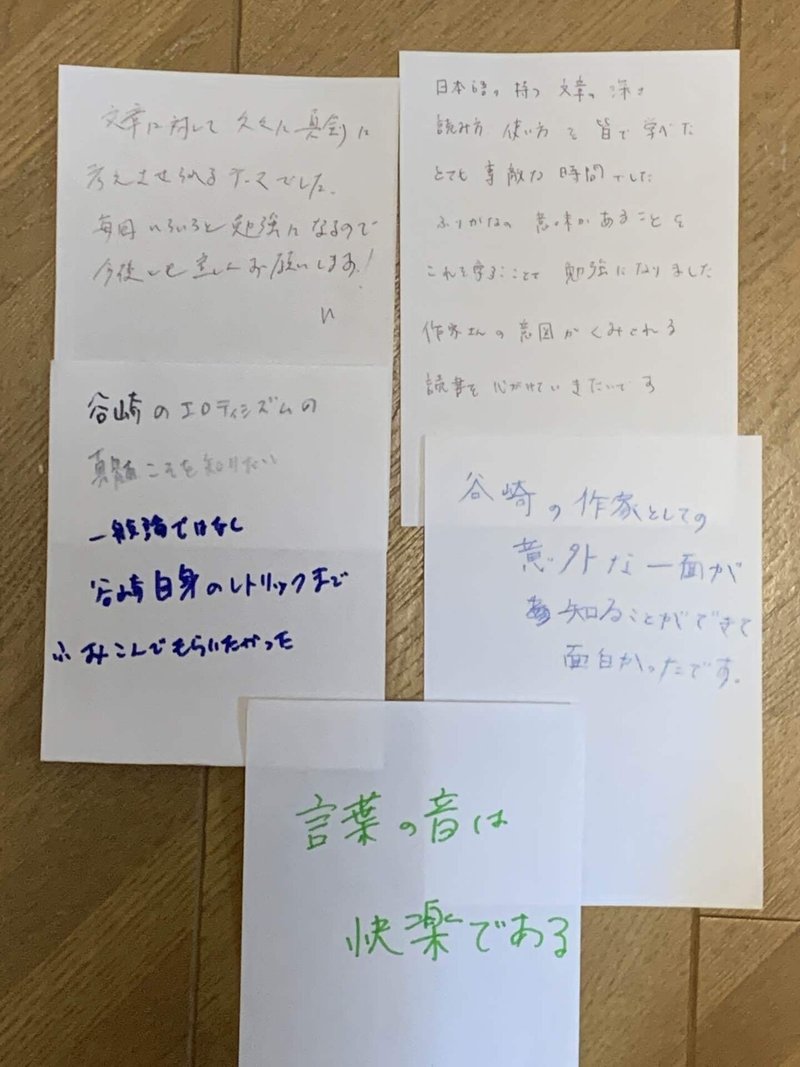 文章に対して久々に真剣に
考えさせられるテーマでした。
毎回いろいろと勉強になるので
今後とも宜しくお願いします!
日本語の持つ文章の深さ
読み方 使い方を皆で学べた
とても素敵な時間でした
ふりがなの意味があることを
これを学ることで勉強になりました
作家さんの意図がくみとれる
読書を心がけていきたいです
谷崎のエロティシズムの
真髄こそを知りたい
一般論ではなく
谷崎自身のレトリックまで
ふみこんでもらいたかった
谷崎の作家としての
意外な一面が
知ることができて
面白かったです。
言葉の音は
快楽である